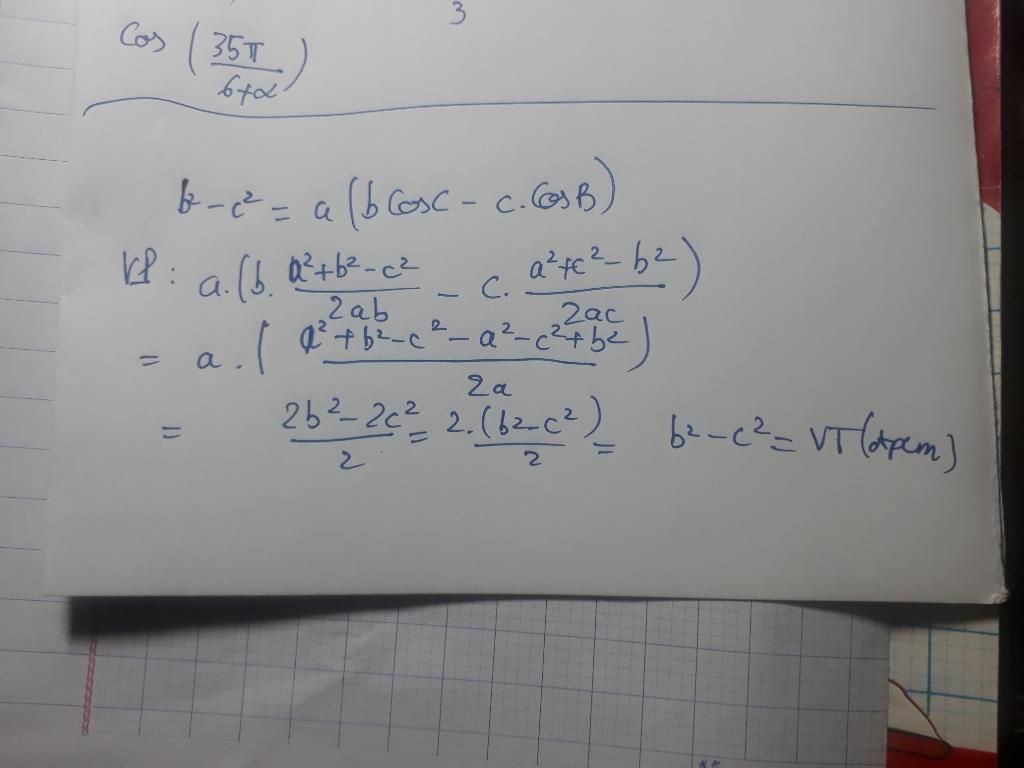 3
Cos (35π / 6+α)
b² – c² = a (b CosC – c. CosB)
VP: a.(b. (a²+b²–c²)/(2ab) – c. (a²+c²–b²)/(2ac))
= a . ((a²+b²–c²–a²–c²+b²)/(2a))
= (2b²–2c²)/2 = (2.(b²–c²))/2 = b²–c² = VT (đpcm)